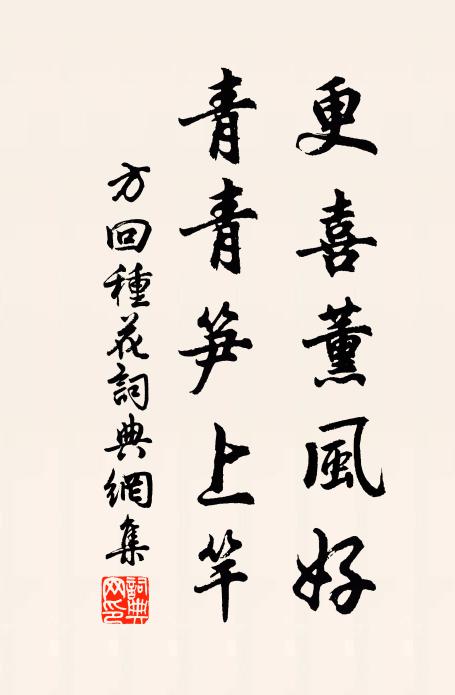 更喜薰風好
青青笋上竿
方回種花詞典網集
詞典网印